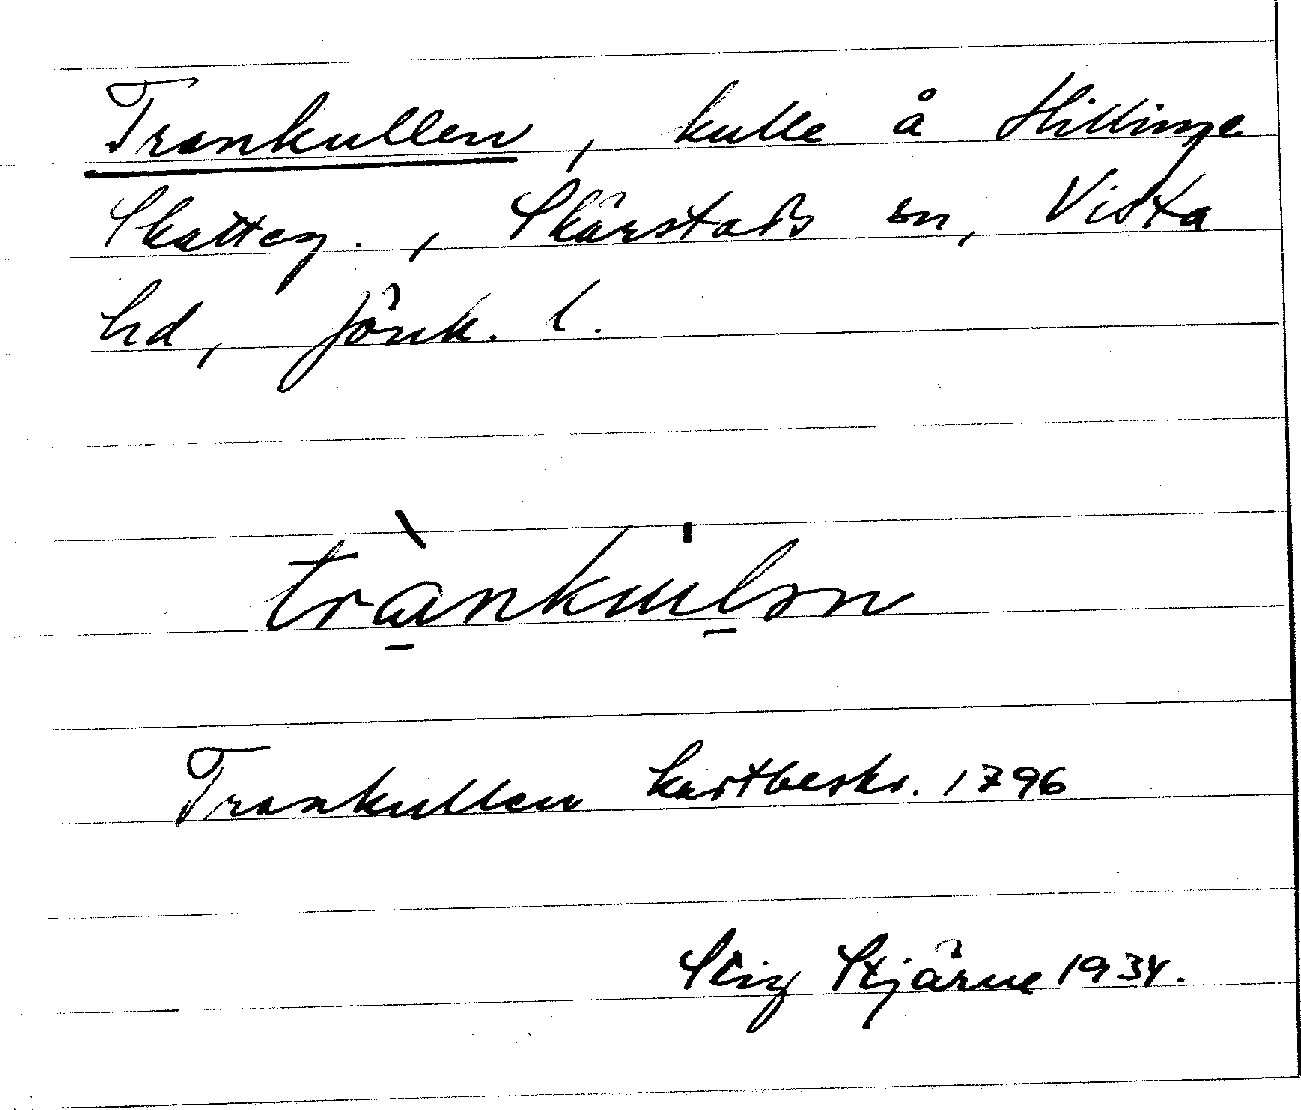 Trankullen, kulle å Hillinge
Skatteg., Skärstads sn, Vista
hd, Jönk. l.
trànku̇lən
Trankullen kartbeskr. 1796
Stig Stjärne 1934.